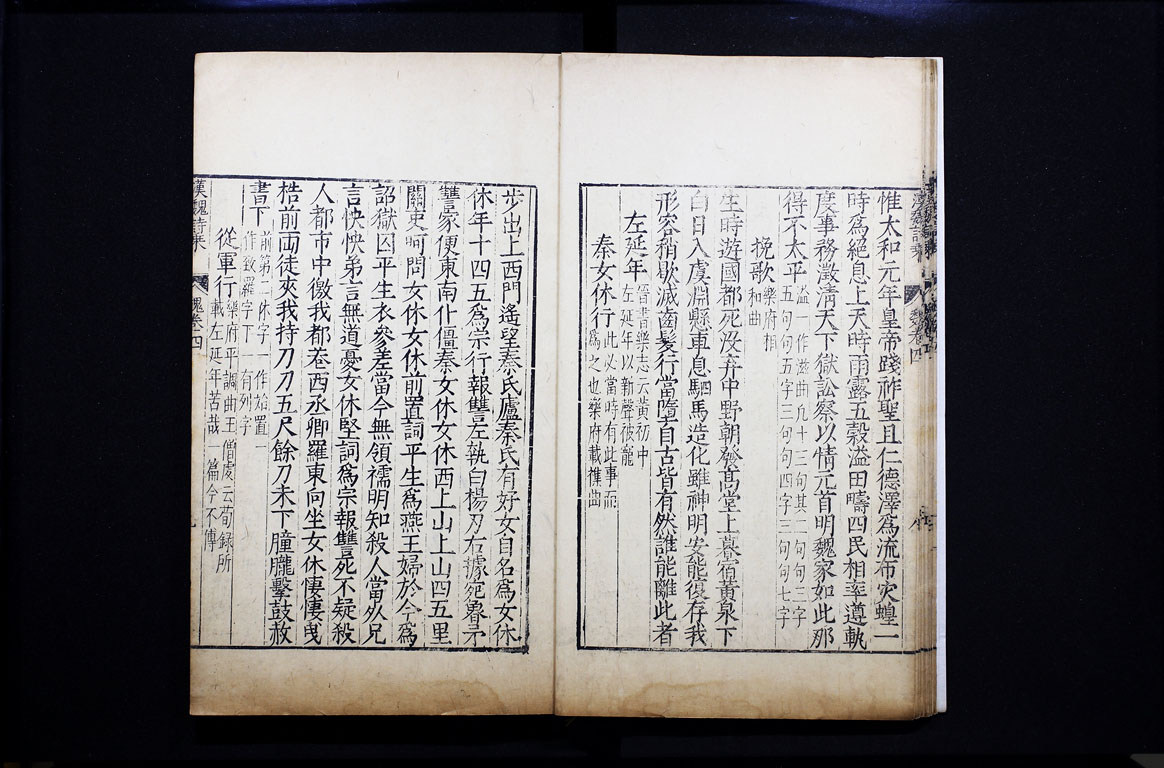 惟太和元年皇帝踐祚聖且仁德澤為流布灾蝗一
時為絕息上天時雨露五穀溢田疇四民相率遵軌
度事務澂清天下獄訟察以情元首明魏家如此那
得不太平
溢一作滋曲凡十三句其二句句三字
五句句五字三句句四字三句句七字
挽歌
樂府相
和曲
生時遊國都死没弃中野朝發髙堂上暮宿黄泉下
白日入虞淵懸車息駟馬造化雖神明安能復存我
形容稍歇滅齒髮行當墮自古皆有然誰能離此者
左延年
晉書樂志云黄初中
左延年以新聲被寵
秦女休行
此必當時有此事而
為之也樂府載雜曲
步出上西門遙望秦氏廬秦氏有好女自名為女休
休年十四五為宗行報讐左執白楊刃右據宛魯矛
讐家便東南仆僵秦女休女休西上山上山四五里
關吏呵問女休女休前置詞平生為燕王婦於今為
詔獄囚平生衣參差當今無領襦明知殺人當死兄
言怏怏弟言無道憂女休堅詞為宗報讐死不疑殺
人都市中徼我都巷西丞卿羅東向坐女休悽悽曳
梏前兩徒夾我持刀刀五尺餘刀未下朣朧擊鼓赦
書下
前第二休字一作始置一
作致羅字下一有列字
從軍行
樂府平調曲王僧虔云荀録所
載左延年苦哉一篇今不傳
漢魏詩乗
魏卷四